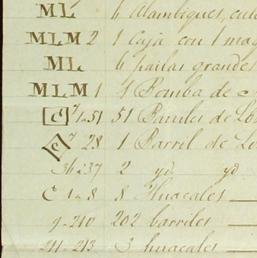 ML 6 Alambiques, 
MLM 2 1 Caja con 1 maq
ML 6 grandes
MLM 1 1 Bomba de
[C] 1-51 51 Barriles de Lo
28 1 Barril de Lo
36-237 2 yd yd
C 1-8 8 Huacales
9-210 202 barriles
211-213 3 huacales